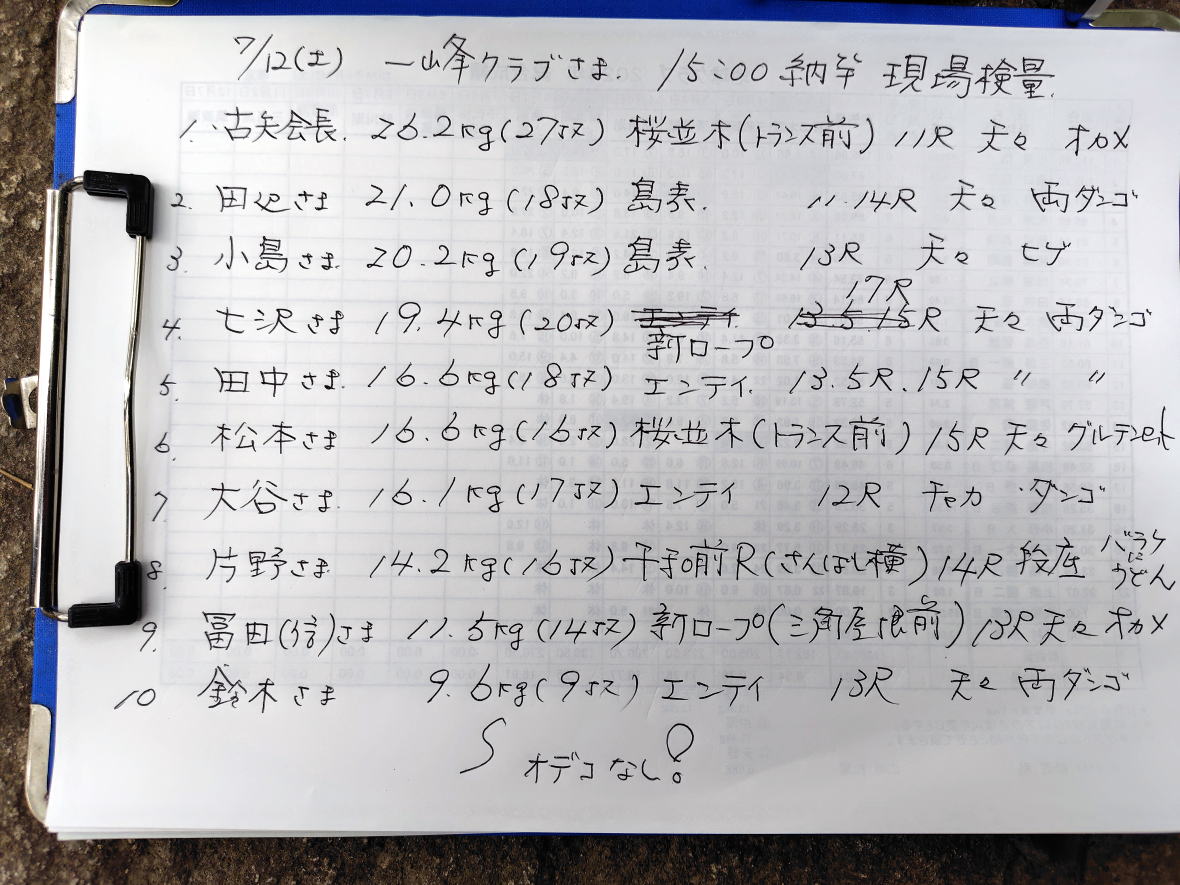 7/12(土) 一峰クラブさま. 15:00 納竿 現場検量.
1. 古矢会長. 26.2kg(27枚) 桜並木(トランス前) 11R 天々 オカメ
2. 田辺さま 21.0kg(18枚) 島表. 11.14R 天々 両ダンゴ
3. 小島さま 20.2kg(19枚) 島表. 13R 天々 ヒゲ
17R
4. 七沢さま 19.4kg(20枚) エンテイ. 13.5 15R 天々 両ダンゴ
新ロープ
5. 田中さま. 16.6kg(18枚) エンテイ. 13.5R.15R 〃 〃
6. 松本さま 16.6kg(16枚) 桜並木(トランス前) 15R 天々 グルテンセット
7. 大谷さま 16.1kg(17枚) エンテイ 12R チャカ ダンゴ
8. 片野さま 14.2kg(16枚) 前R(さんばし横) 14R 段底 バラケにうどん
9. 冨田(信)さま 11.5kg(14枚) 新ロープ(三角屋根前) 13R 天々 オカメ
10 鈴木さま 9.6kg(9枚) エンテイ 13R 天々 両ダンゴ
オデコなし!